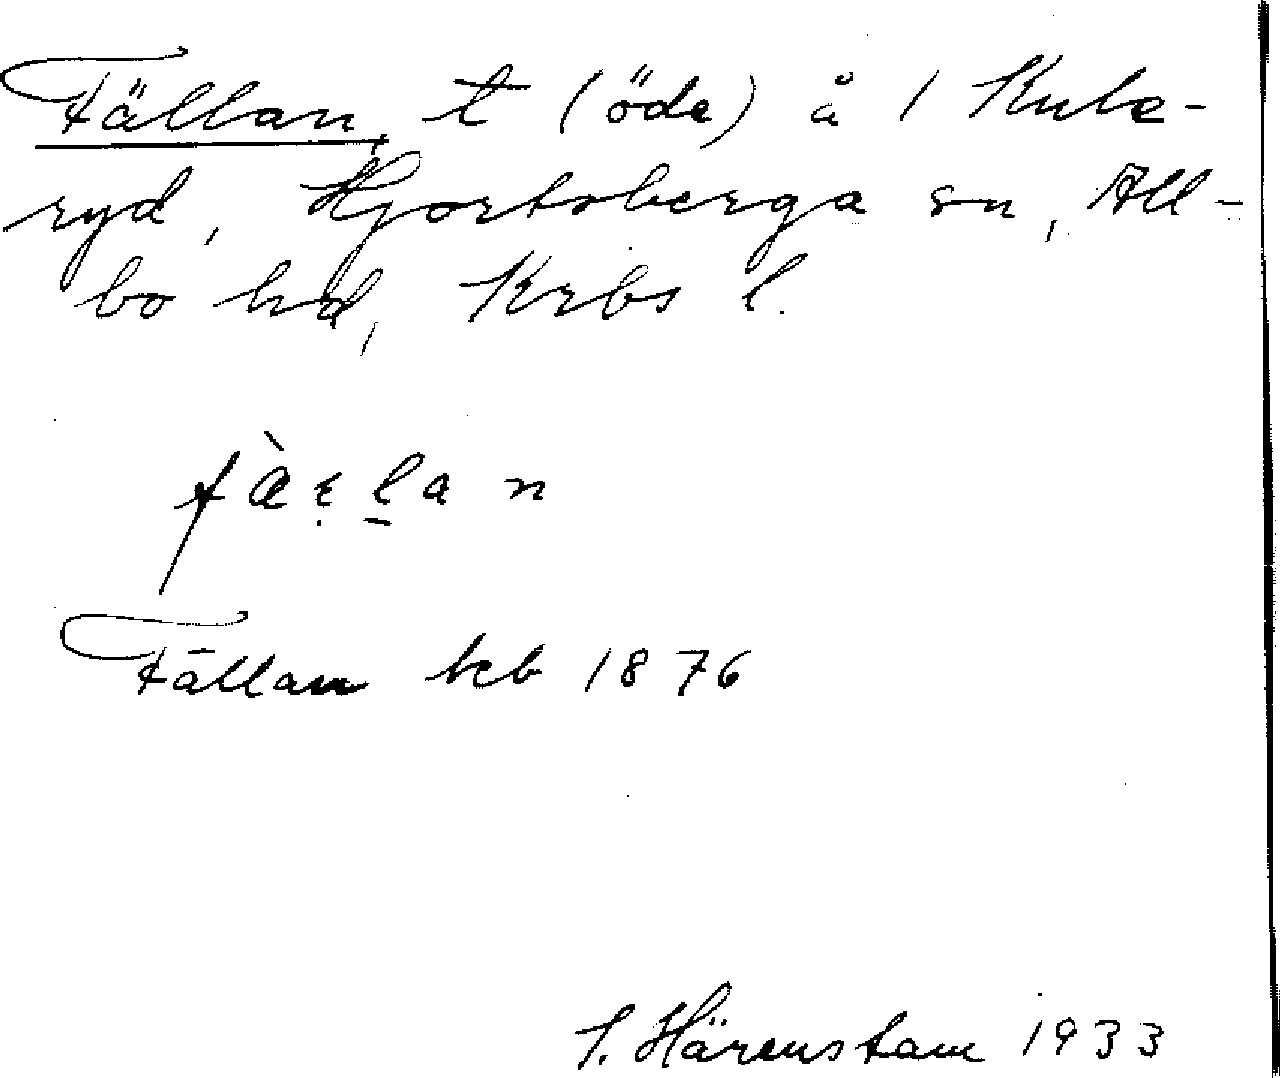 Fällan, t (öde) å 1 Kule-
ryd, Hjortsberga sn, All-
bo hd, Krbs l.
Fällan beb 1876
S. Härenstam 1933